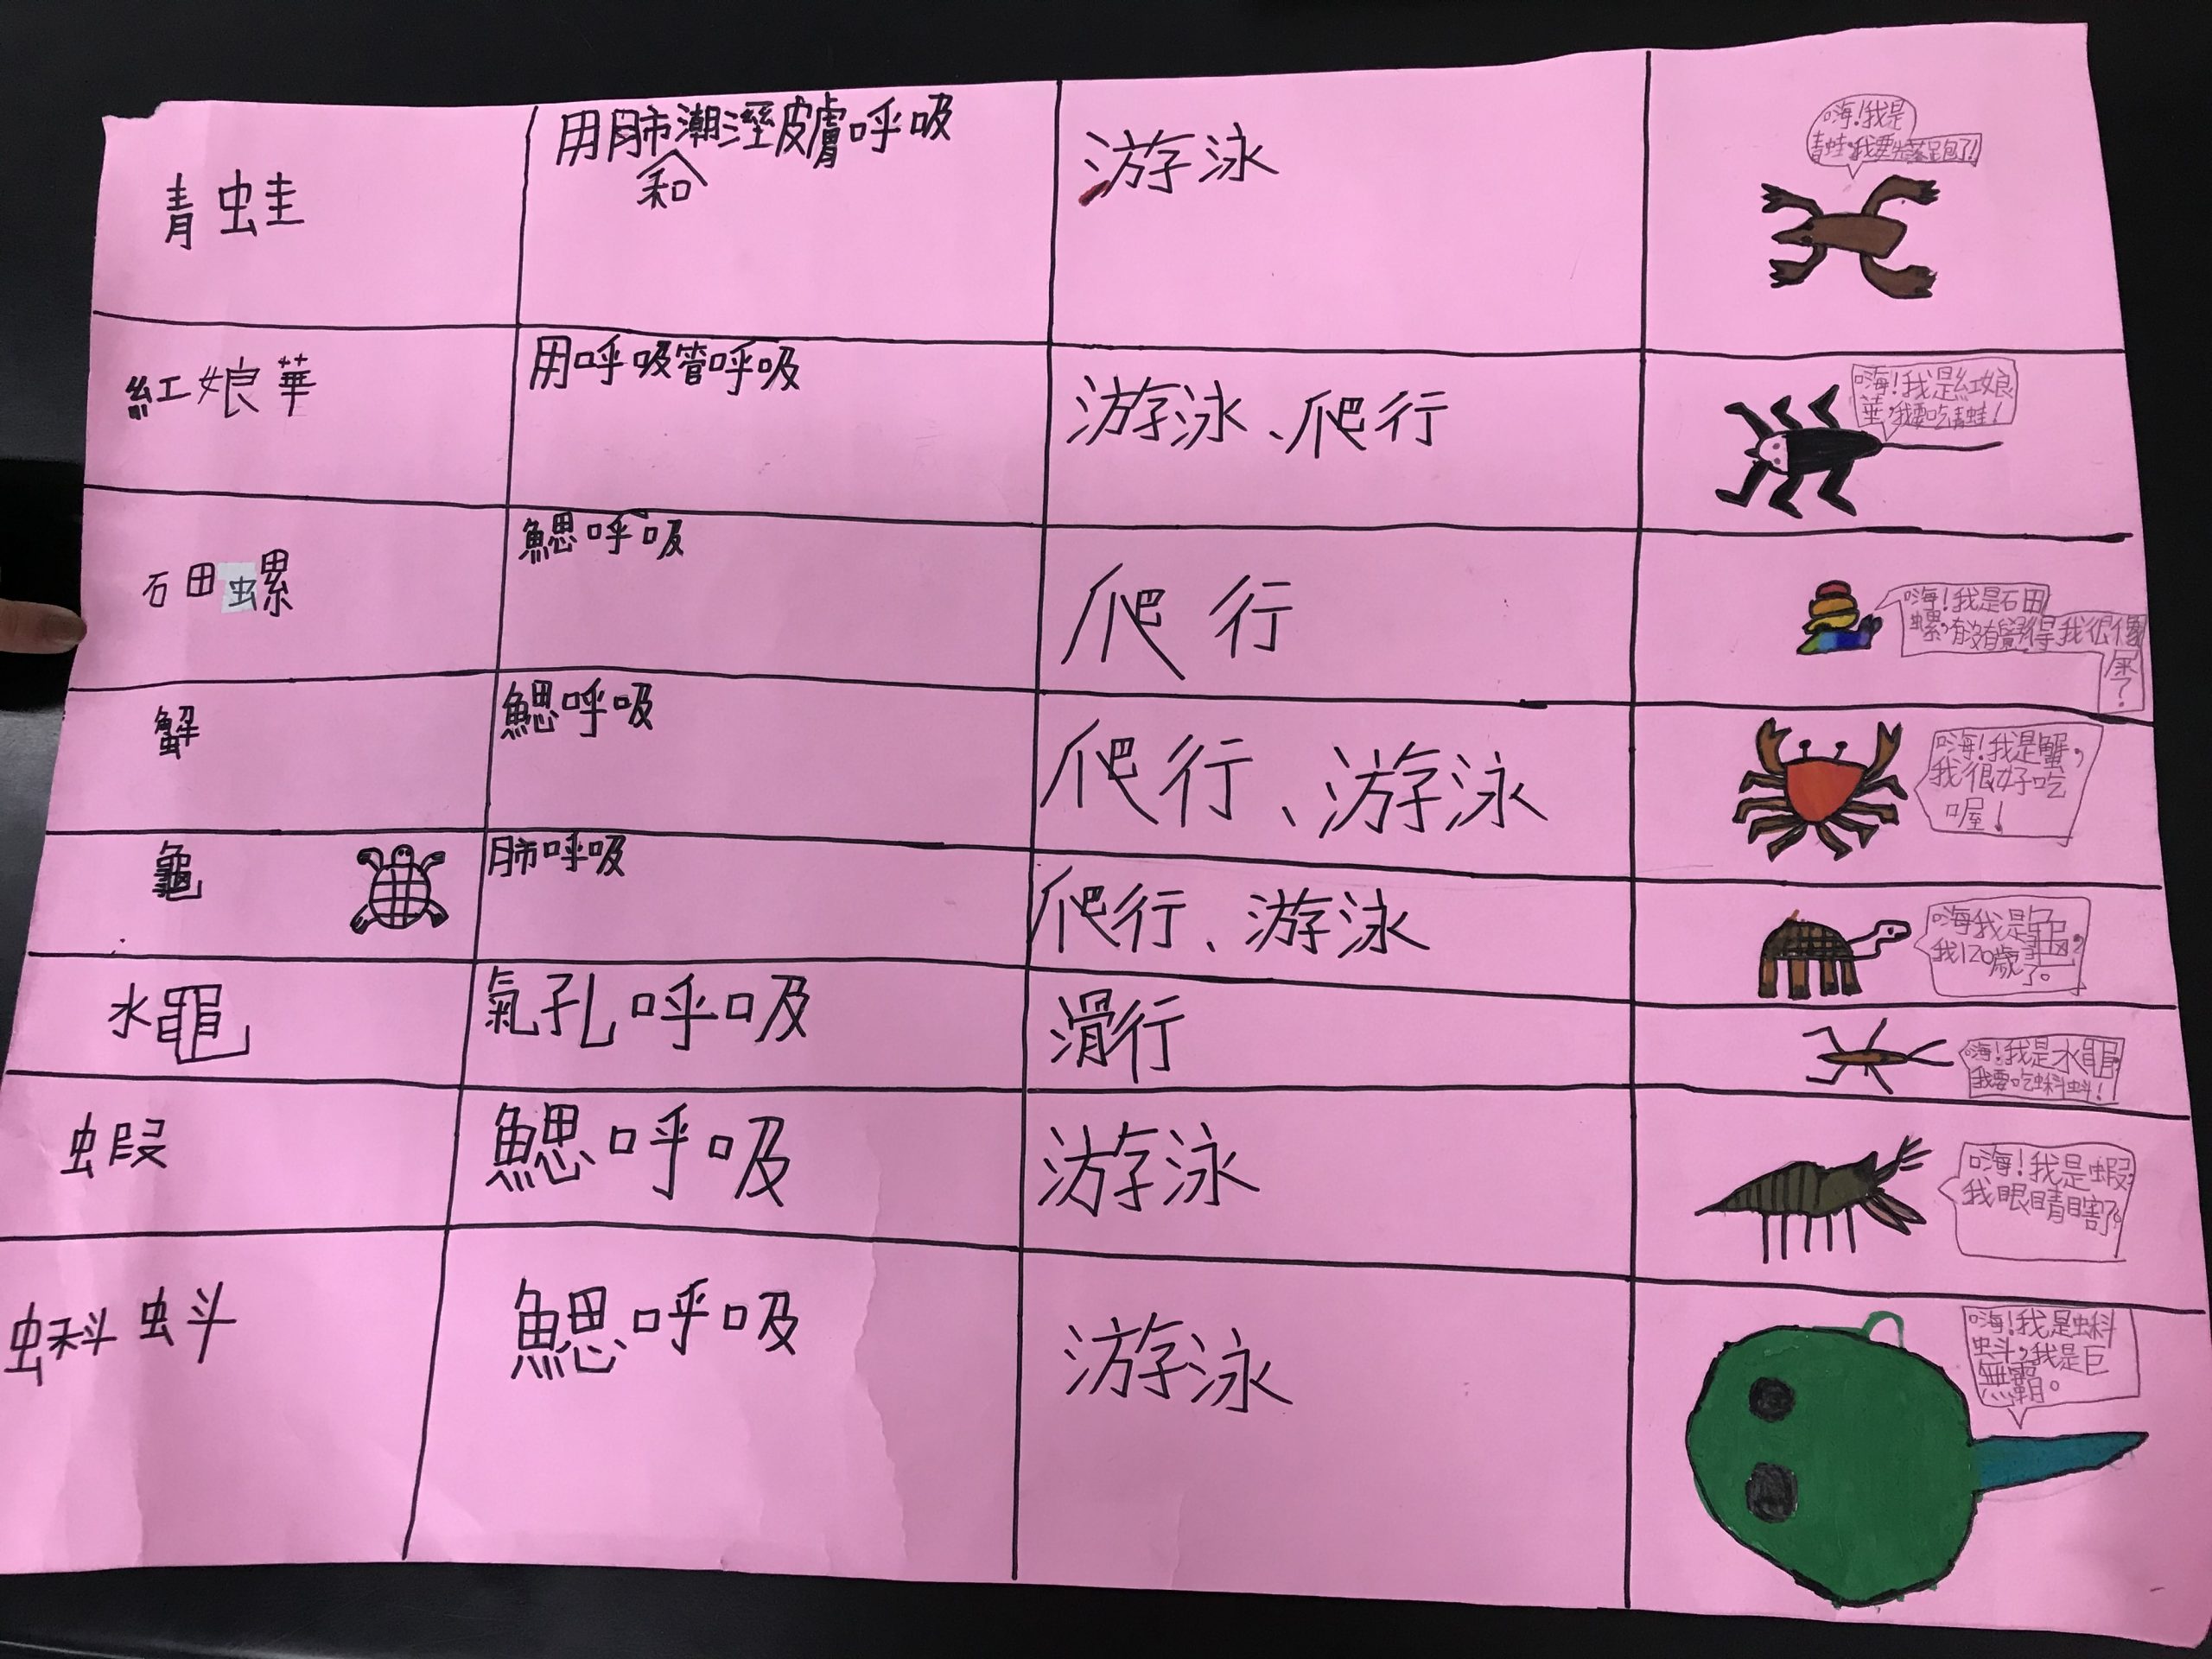 青蛙
用肺和潮溼皮膚呼吸
游泳
嗨!我是
青蛙,我要先落跑了!
紅娘華
用呼吸管呼吸
游泳、爬行
嗨!我是紅娘
華,我要吃青蛙!
石田螺
鰓呼吸
爬行
嗨!我是石田
螺,有沒有覺得我很像
屎?
蟹
鰓呼吸
爬行、游泳
嗨!我是蟹,
我很好吃
喔!
龜
肺呼吸
爬行、游泳
嗨我是龜,
我120歲了。
水黽
氣孔呼吸
滑行
嗨!我是水黽,
我要吃蝌蚪!
蝦
鰓呼吸
游泳
嗨!我是蝦,
我眼睛瞎了。
蝌蚪
鰓呼吸
游泳
嗨!我是蝌
蚪,我是巨
無霸。